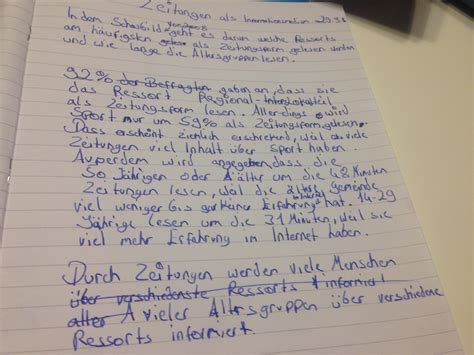 Zeitungen als Informations 
In dem Schaubild von 2008 geht es darum welche Ressorts
am häufigsten als Zeitungsform gelesen werden
und wie lange die Altersgruppen lesen.
92% der Befragten gaben an, dass sie
das Ressort Regional-
als Zeitungsform lesen. Allerdings wird
Sport nur um 59% als Zeitungsform gelesen.
Dass erscheint ziemlich erschreckend, wäl
Zeitungen viel Inhalt über Sport haben.
Außerdem wird angegeben, dass die
50 Jährigen oder älter um die 48 Minuten
Zeitungen lesen, wäl die ältere Gemeinde
viel weniger bis gar keine Erfahrung im Internet hat. 14-29
Jährige lesen um die 31 Minuten, wäl sie
viel mehr Erfahrung in Internet haben.
Durch Zeitungen werden viele Menschen
über verschiedenste Ressorts informiert
aller vieler Altersgruppen über verschiedene
Ressorts informiert.